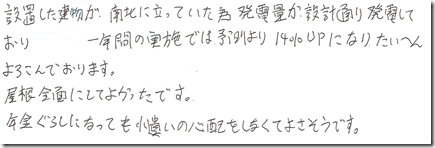 設置した建物が、南北に立っていた為 発電量が設計通り発電して
おり 一年間の実施では予測より 14%UPになりたいへん
よろこんでおります。
屋根全面にしてよかったです。
年金ぐらしになっても小遣いの心配をしなくてよさそうです。